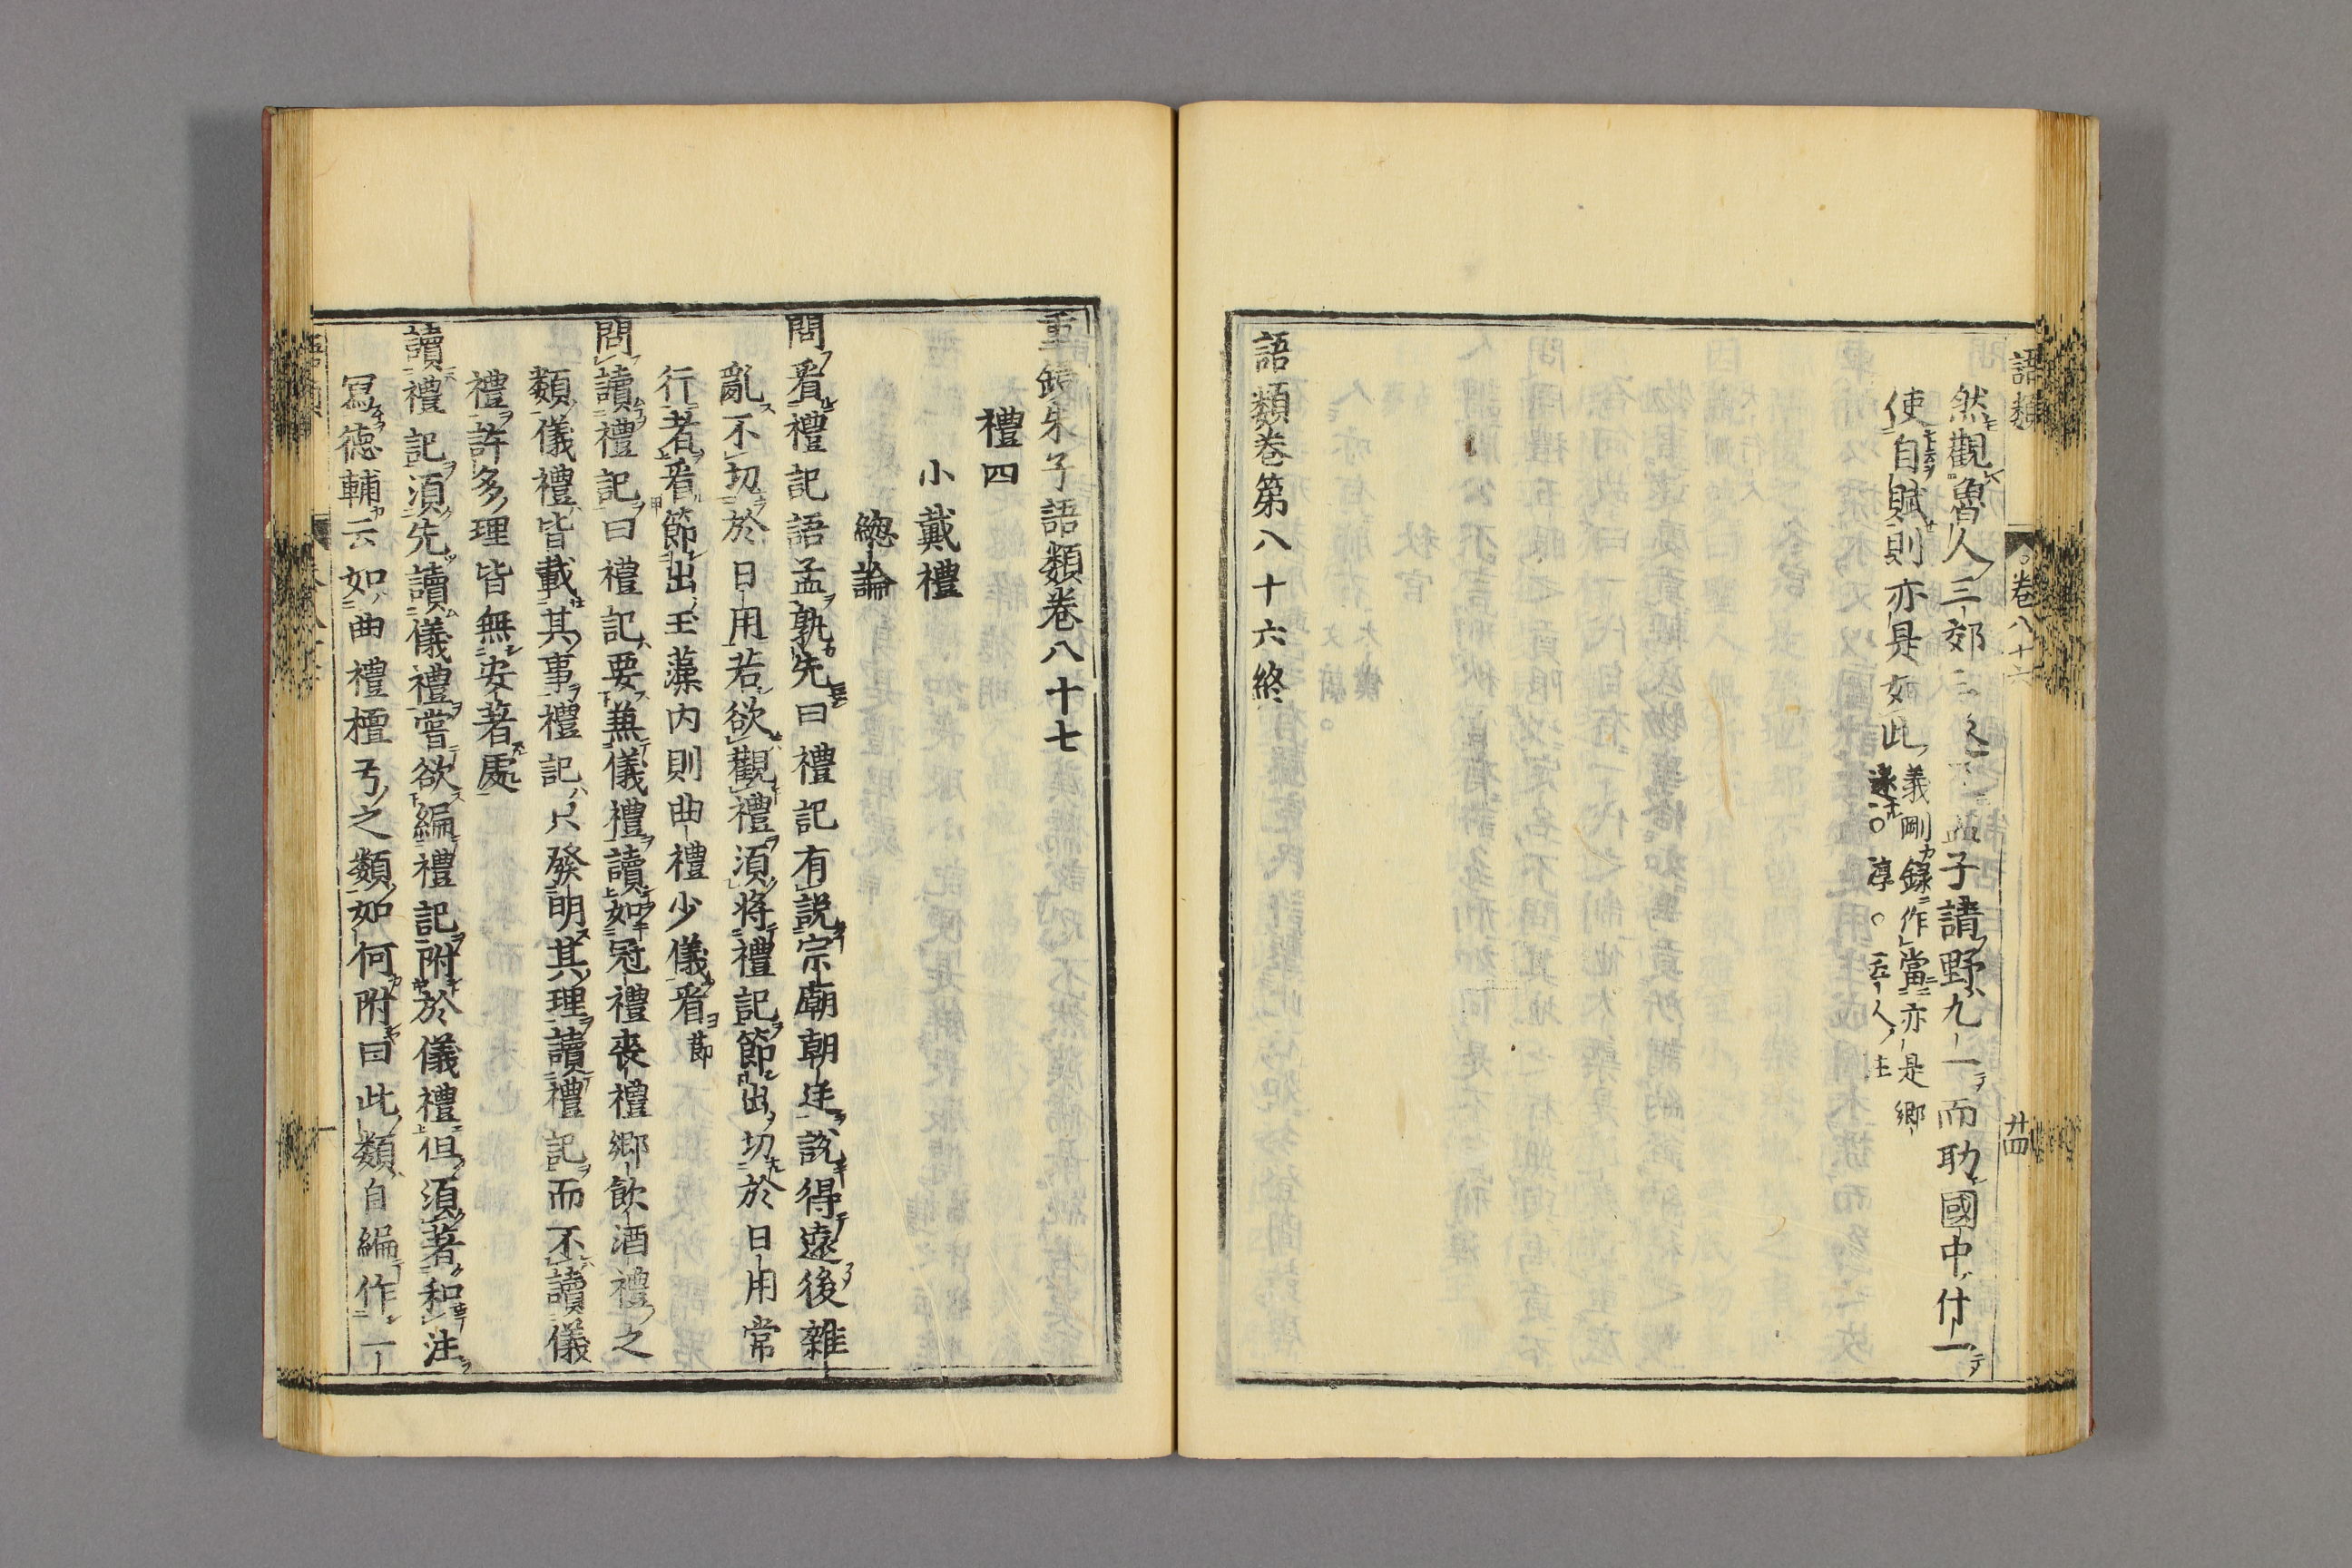 語類
卷八十六
廿四
然觀魯人三郊三遂孟子請野九一而助國中什一
使自賦則亦是如此義剛錄作當亦是鄉
遂法〇淳〇
語類卷第八十六終
重鋟朱子語類卷八十七
禮四
小戴禮
總論
問看禮記語孟孰先曰禮記有說宗廟朝廷說得遠後雜
亂不切於日用若欲觀禮須將禮記節出切於日用常
行者看節出玉藻内則曲禮少儀看節
問讀禮記曰禮記要兼儀禮讀如冠禮喪禮鄉飲酒禮之
類儀禮皆載其事禮記只發明其理讀禮記而不讀儀
禮許多理皆無安著處
讀禮記須先讀儀禮嘗欲編禮記附於儀禮但須著和注
寫德輔云如曲禮檀弓之類如何附曰此類自編作一